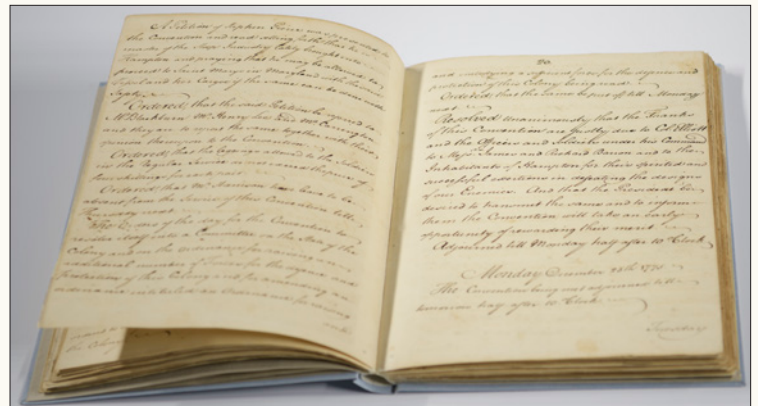 A Petition of Stephen was presented to
the Convention and read setting forth that he is
master of the Sloop Industry lately brought into
Hampton and praying that he may be allowed to
proceed to Saint Marys in Maryland with the said
Vessel and her Cargo if the same can be done with
Safety
Ordered, that the said Petition be referred to
Mr Blackburn Mr Henry Lee and Mr
and they are to report the same together with their
opinion thereupon to the Convention
Ordered, that the allowed to the Soldiers
in the Regular Service at the price of
four shillings for each pair
Ordered that Mr Harrison have leave to be
absent from the Service of this Convention till
Thursday next
The Order of the Day for the Convention to
resolve itself into a Committee on the State of the
Colony and on the Ordinance for raising an
additional number of Forces for the defence and
protection of this Colony and for amending an
ordinance intituled an Ordinance for raising
and
the Colony
20.
and embodying a sufficient force for the defence and
protection of this Colony being read
Ordered, that the same be put off till Monday
next
Resolved Unanimously that the Thanks
of this Convention are justly due to Col
and the Officers and Soldiers under his Command
to Majr and Richard Barron and to the
Inhabitants of Hampton for their spirited and
successful exertions in defeating the designs
of our Enemies. And that the President be
desired to transmit the same and to inform
them the Convention will take an early
opportunity of rewarding their merit
Adjourned till Monday half after 10 Clock
Monday December
The Convention being met adjourned till
tomorrow half after 10 Clock
Tuesday